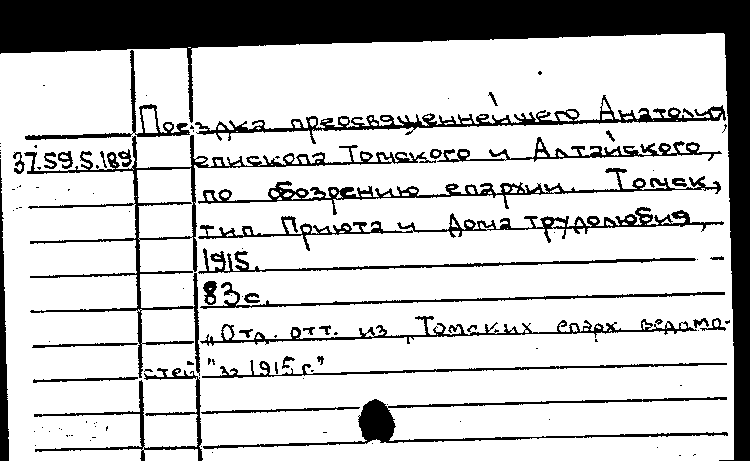 Поездка преосвященнейшего Анатолия,
37.59.5.189 епископа Томского и Алтайского,
по обозрению епархии. Томск,
тип. Приюта и Дома трудолюбия,
1915.
83 с.
„Отд. отт. из „Томских епарх ведомо-
стей" за 1915 г."